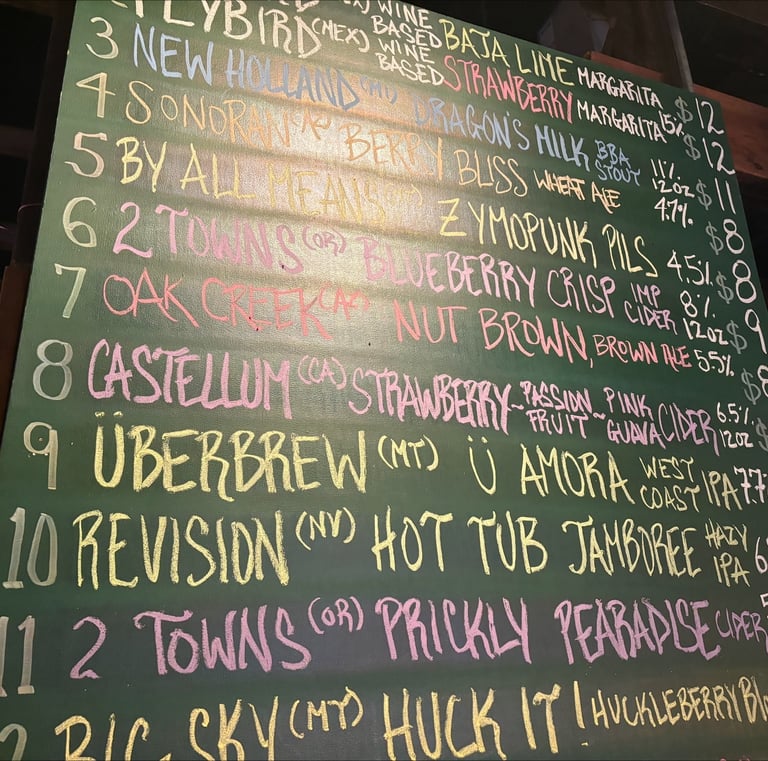 FLYBIRD (MEX) WINE BASED BAJA LIME MARGARITA $12
WINE BASED STRAWBERRY MARGARITA 15% $12
3 NEW HOLLAND (MI) DRAGON'S MILK BBA STOUT 11% 12OZ $11
4 SONORAN (AZ) BERRY BLISS WHEAT ALE 4.7% $8
5 BY ALL MEANS ZYMOPUNK PILS 4.5% $8
6 2 TOWNS (OR) BLUEBERRY CRISP IMP CIDER 8% 12OZ $9
7 OAK CREEK (AZ) NUT BROWN, BROWN ALE 5.5% $8
8 CASTELLUM (CA) STRAWBERRY~PASSION FRUIT~PINK GUAVA CIDER 6.5% 12OZ $
9 ÜBERBREW (MT) Ü AMORA WEST COAST IPA 7.7
10 REVISION (NV) HOT TUB JAMBOREE HAZY IPA 6
11 2 TOWNS (OR) PRICKLY PEARADISE CIDER 5
2 BIG SKY (MT) HUCK IT! HUCKLEBERRY Bl